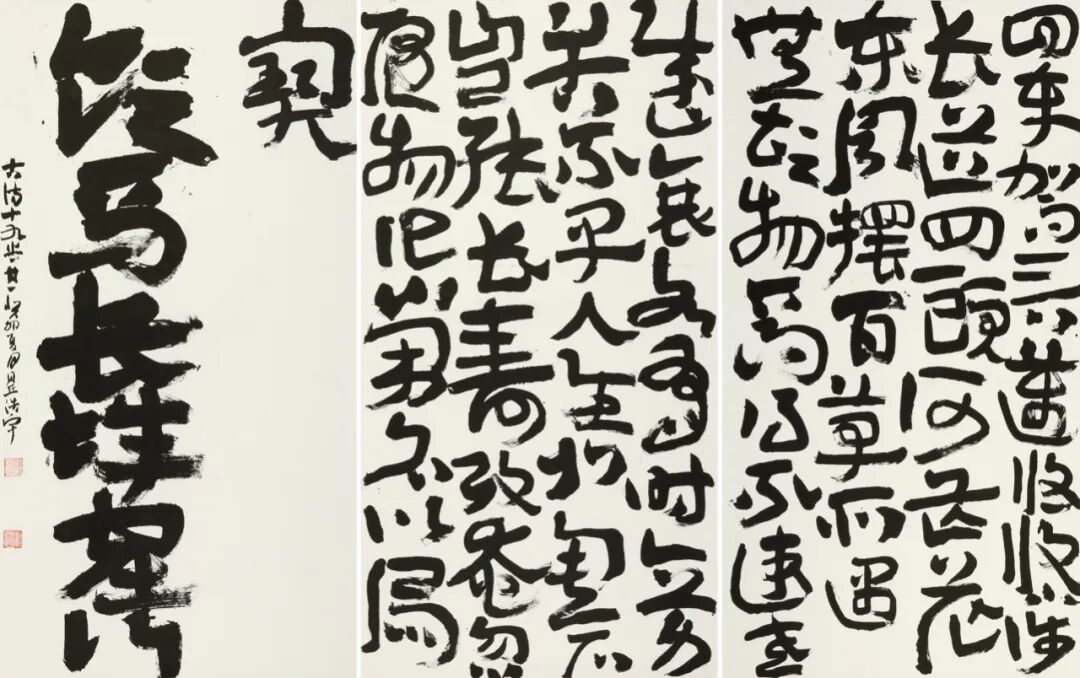 回车驾言迈悠悠涉
长道四顾何茫茫
东风摇百草所遇
无故物焉得不速老
盛衰各有时立身
苦不早人生非金石
岂能长寿考奄忽
随物化荣名以为
宝
饮马长城窟行
古诗十九首其十一癸卯夏日